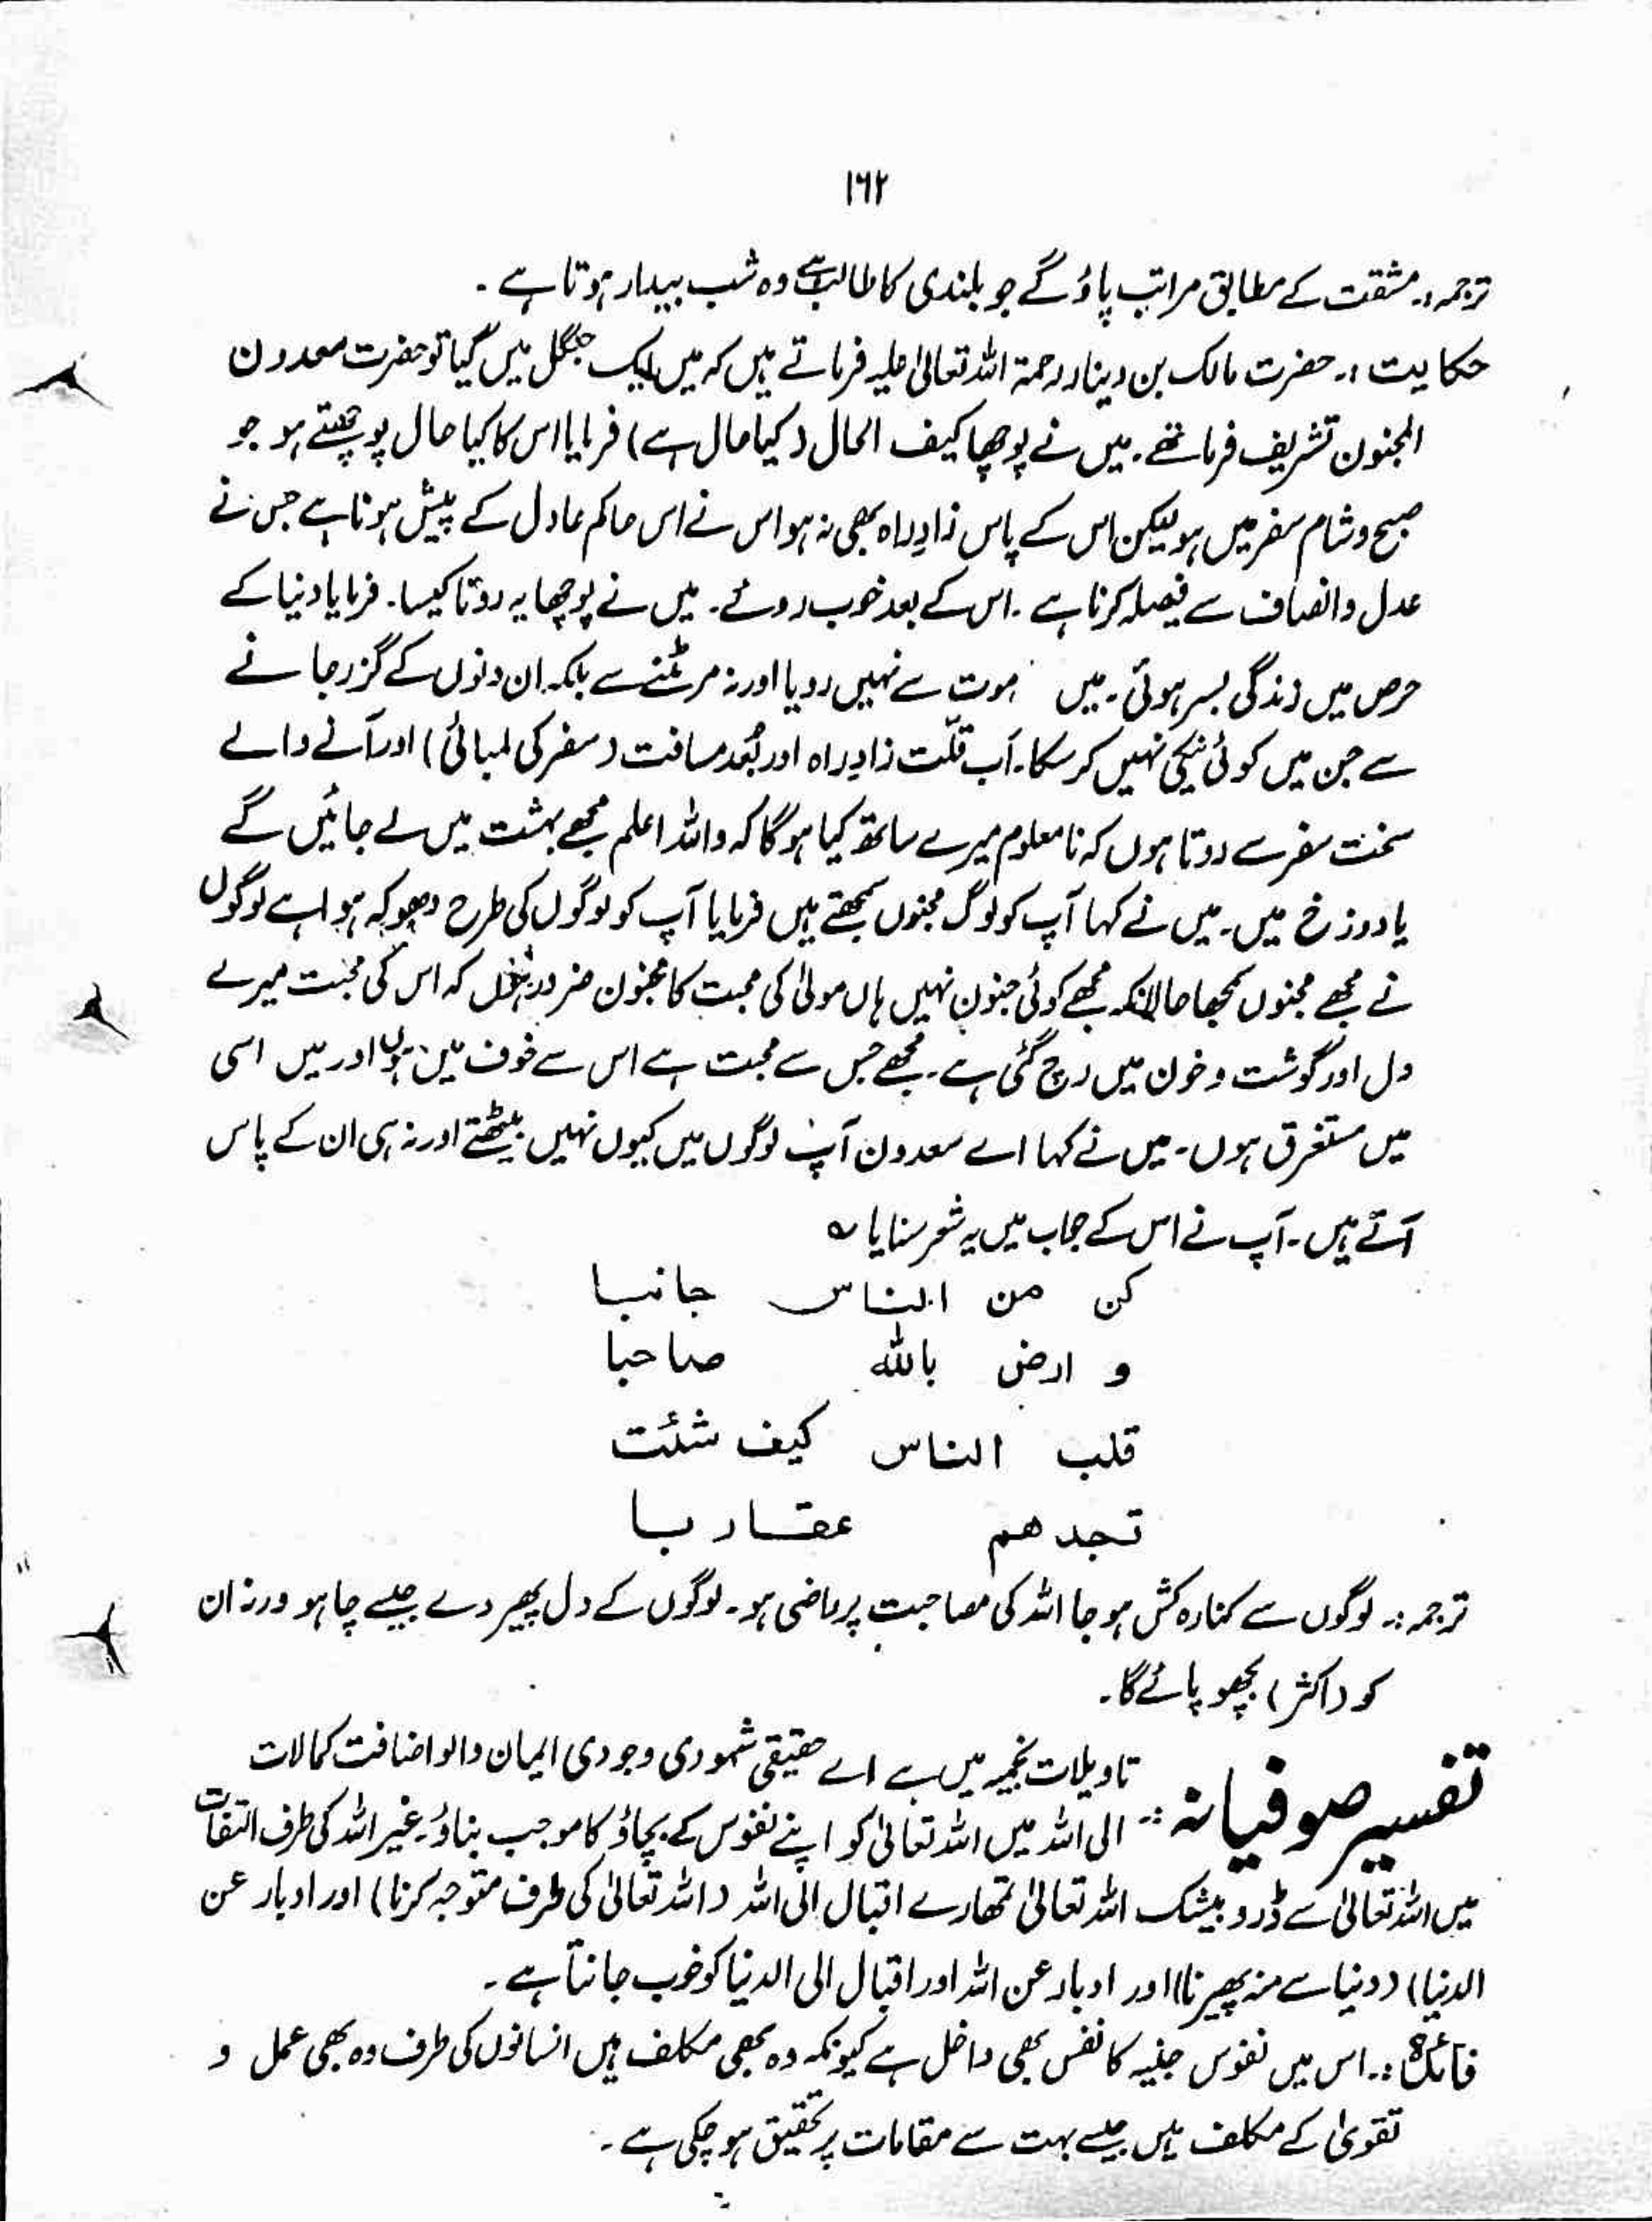 ۱۶۲
ترجمہ:۔ مشقت کے مطابق مراتب پاؤ گے جو بلندی کا طالب ہے وہ شب بیدار ہوتا ہے ۔
حکایت :۔ حضرت مالک بن دینار رحمۃ اللہ تعالیٰ علیہ فرماتے ہیں کہ میں ایک جنگل میں گیا تو حضرت سعدون
المجنون تشریف فرما تھے ۔ میں نے پوچھا کیف الحال (کیا حال ہے) فرمایا اس کا کیا حال پوچھتے ہو جو
صبح و شام سفر میں ہو لیکن اس کے پاس زادِ راہ بھی نہ ہو اس نے اس حاکم عادل کے پیش ہونا ہے جس نے
عدل و انصاف سے فیصلہ کرنا ہے ۔ اس کے بعد خوب روئے ۔ میں نے پوچھا یہ رونا کیسا ۔ فرمایا دنیا کے
حرص میں زندگی بسر ہوئی ۔ میں موت سے نہیں رویا اور نہ مر مٹنے سے بلکہ ان دنوں کے گزر جانے
سے جن میں کوئی نیکی نہیں کر سکا ۔ اب قلّت زادِ راہ اور بُعد مسافت (سفر کی لمبائی) اور آنے والے
سخت سفر سے روتا ہوں کہ نا معلوم میرے ساتھ کیا ہوگا کہ واللہ اعلم مجھے بہشت میں لے جائیں گے
یا دوزخ میں ۔ میں نے کہا آپ کو لوگ مجنوں سمجھتے ہیں فرمایا آپ کو لوگوں کی طرح دھوکہ ہوا ہے لوگوں
نے مجھے مجنوں سمجھا حالانکہ مجھے کوئی جنون نہیں ہاں مولیٰ کی محبت کا مجنون ضرور ہوں کہ اس کی محبت میرے
دل اور گوشت و خون میں رچ گئی ہے ۔ مجھے جس سے محبت ہے اس سے خوف میں ہوں اور میں اسی
میں مستغرق ہوں ۔ میں نے کہا اے سعدون آپ لوگوں میں کیوں نہیں بیٹھتے اور نہ ہی ان کے پاس
آتے ہیں ۔ آپ نے اس کے جواب میں یہ شعر سنایا ؎
کن من الناس جانبا
و ارض باللہ صاحبا
قلب الناس کیف شئت
تجدھم عقاربا
ترجمہ :۔ لوگوں سے کنارہ کش ہو جا اللہ کی مصاحبت پر راضی ہو ۔ لوگوں کے دل پھیر دے جیسے چاہو ورنہ ان
کو (اکثر) بچھو پائے گا ۔
تفسیر صوفیانہ :۔ تاویلات نجمیہ میں ہے اے حقیقی شہودی وجودی ایمان والو اضافت کمالات
الی اللہ میں اللہ تعالیٰ کو اپنے نفوس کے بچاؤ کا موجب بناؤ ۔ غیر اللہ کی طرف التفات
میں اللہ تعالیٰ سے ڈرو بیشک اللہ تعالیٰ تمہارے اقبال الی اللہ (اللہ تعالیٰ کی طرف متوجہ کرنا) اور ادبار عن
الدنیا) (دنیا سے منہ پھیرنا) اور ادبار عن اللہ اور اقبال الی الدنیا کو خوب جانتا ہے ۔
فائدہ :۔ اس میں نفوس جنیہ کا نفس بھی داخل ہے کیونکہ وہ بھی مکلف ہیں انسانوں کی طرف وہ بھی عمل و
تقویٰ کے مکلف ہیں جیسے بہت سے مقامات پر تحقیق ہو چکی ہے ۔